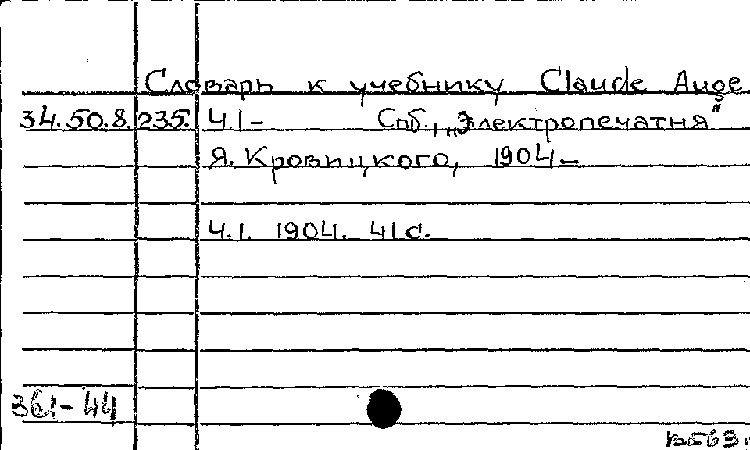 Словарь к учебнику Claude Auge
34.50.8. 235. Ч.1- Спб., „Электропечатня"
Я. Кровицкого, 1904-
Ч.1. 1904. 41с.
361-44